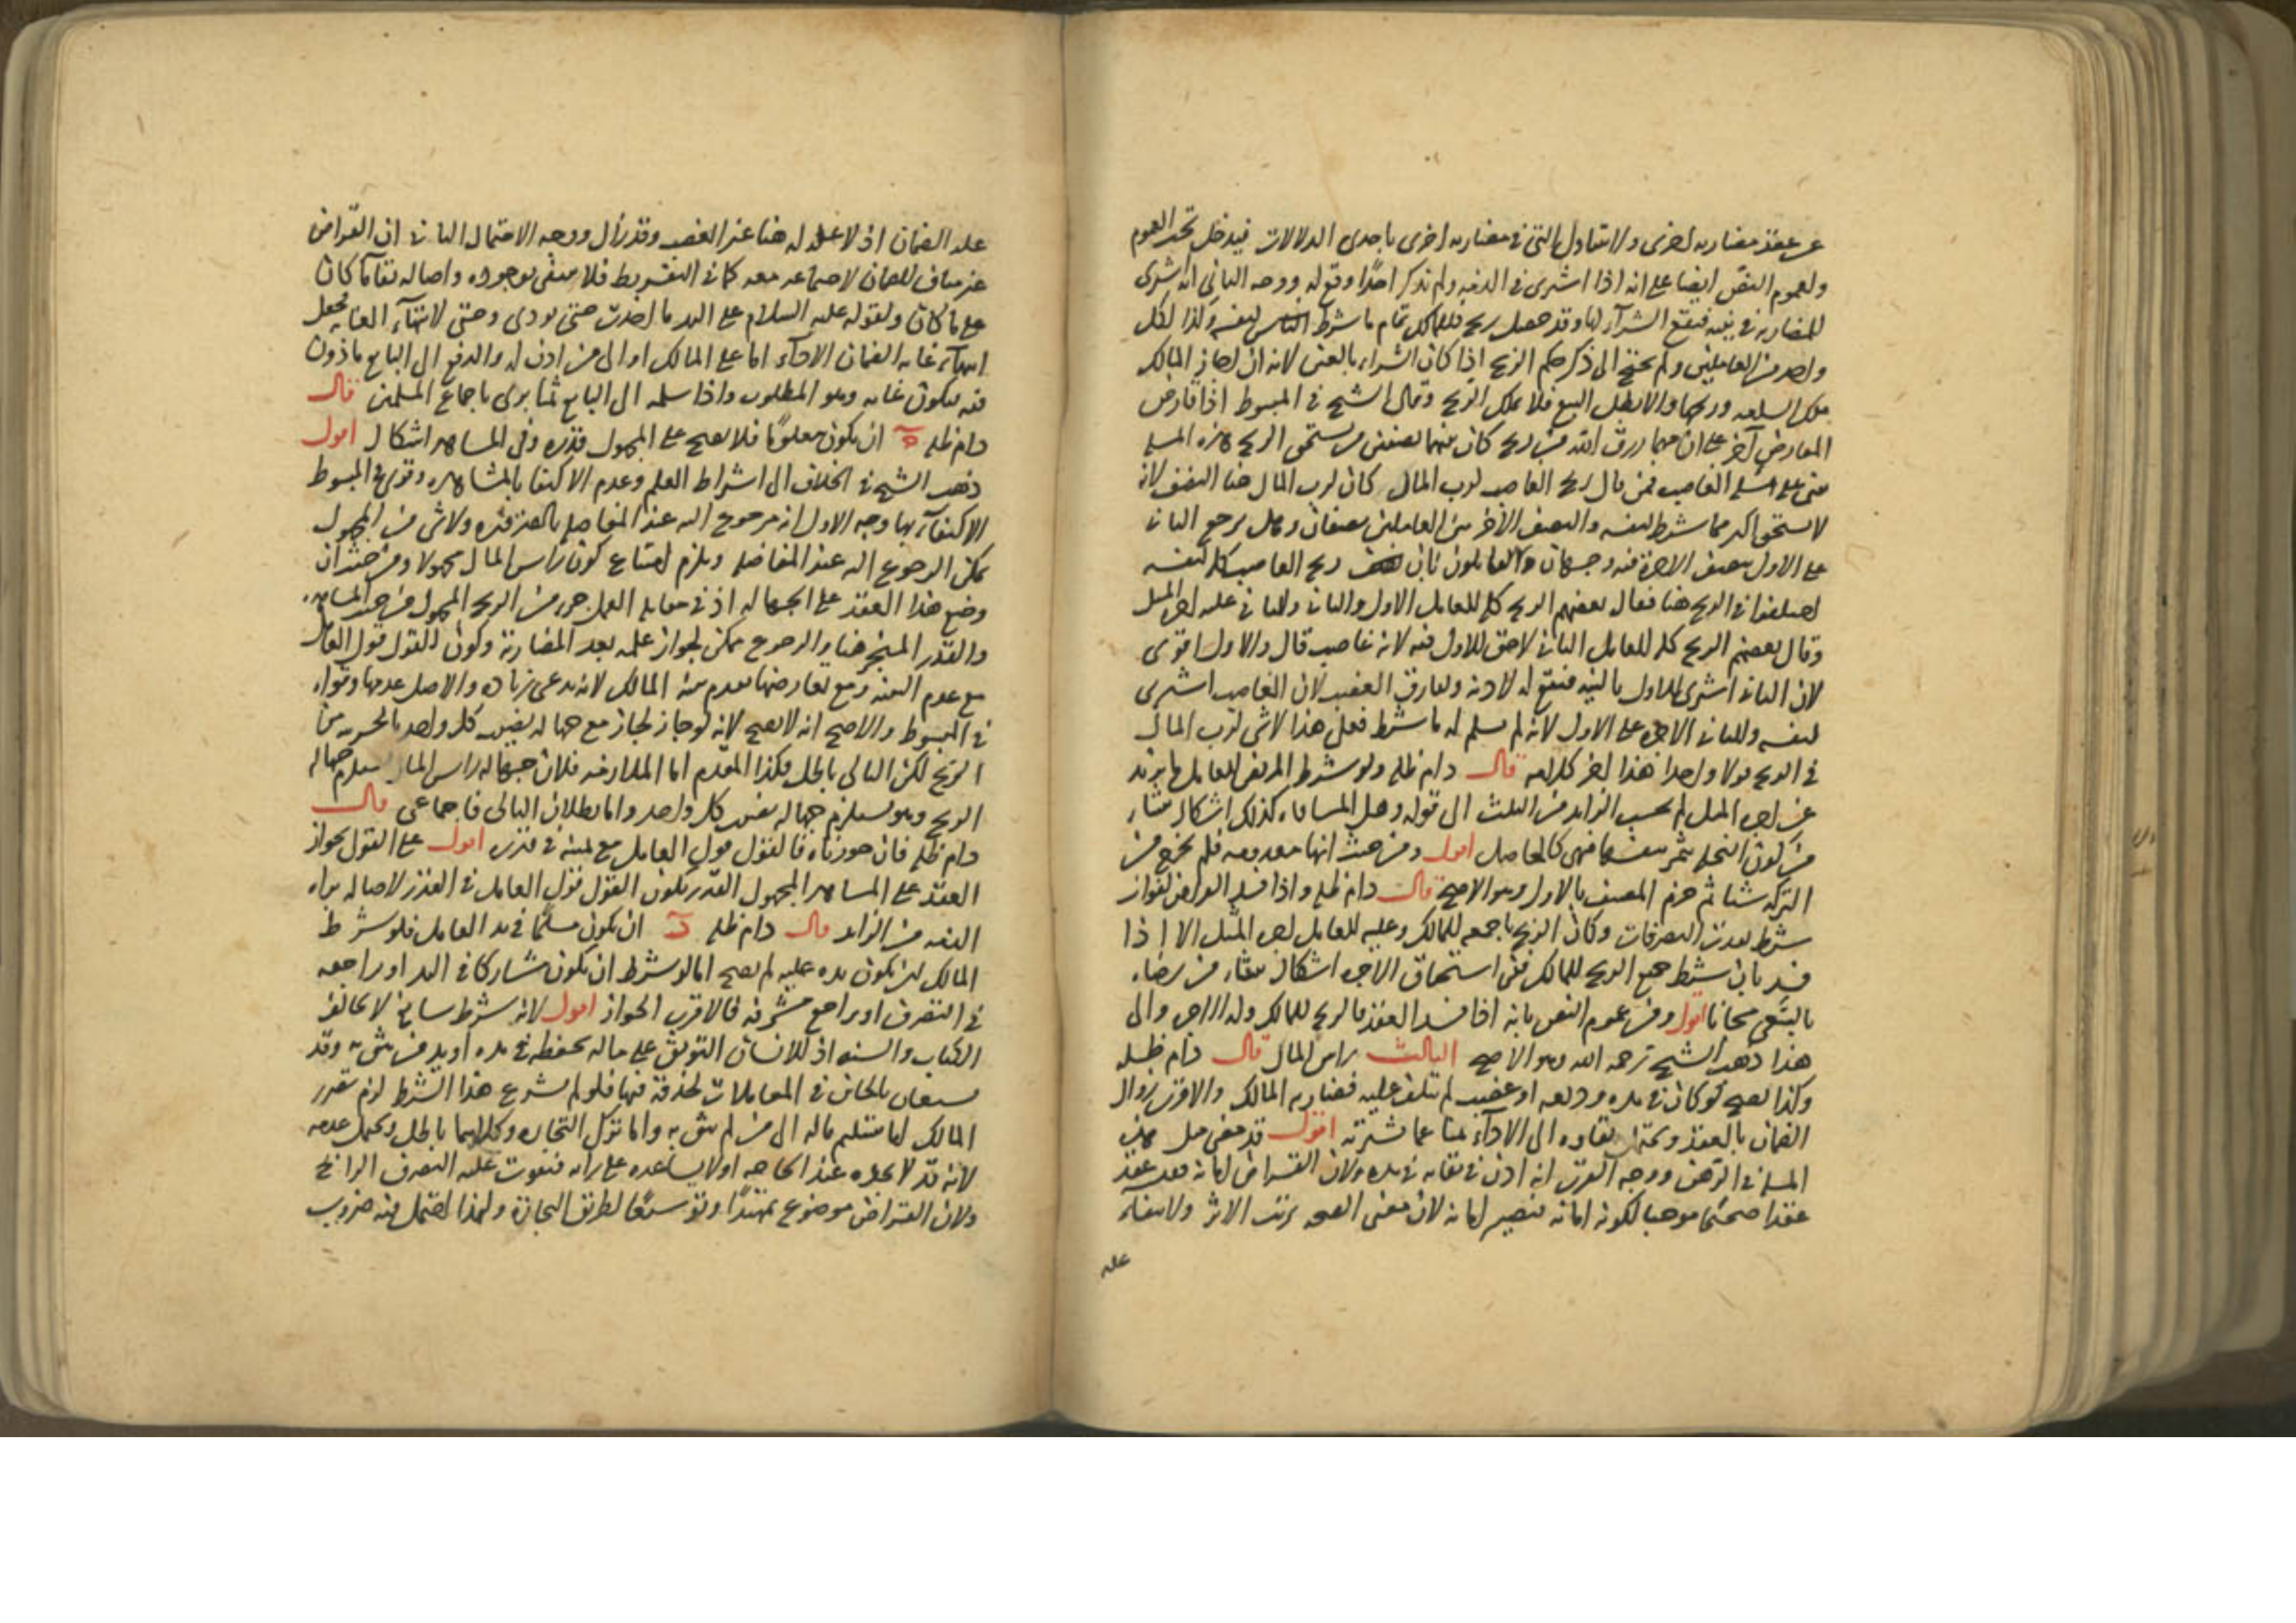 عن عقد مضاربه اخرى ولا تتناول التى فى مضاربه اخرى باحدى الدلالات فيدخل تحت العموم
ولعموم النص ايضا على انه اذا اشترى فى الذمه ولم يذكر احدا وقع له ووجه الثانى انه اشترى
للمضاربه فى نيته فيقع الشرآء لها وقد حصل ربح فللمالك تمام ما شرط لنفسه وكذا لكل
واحد من العاملين ولم يحتج الى ذكر حكم الربح اذا كان الشراء بالعين لانه ان اجاز المالك
ملك السلعه وربحها والا بطل البيع فلا يملك الربح وقال الشيخ فى المبسوط اذا قارض
المقارض آخر على ان مهما رزق الله من ربح كان بينهما نصفين من يستحق الربح هذه المسله
مبنى على مسله الغاصب فمن قال ربح الغاصب لرب المال كان لرب المال هنا النصف لانه
لا يستحق اكثر مما شرط لنفسه والنصف الآخر بين العاملين نصفان وهل يرجع الثانى
على الاول بنصف الاجرة فيه وجهان والقايلون بان ربح الغاصب كله لنفسه
اختلفوا فى الربح هنا فقال بعضهم الربح كله للعامل الاول وللثانى عليه اجر المثل
وقال بعضهم الربح كله للعامل الثانى لا حق للاول فيه لانه غاصب قال والاول اقوى
لان الثانى اشترى للاول بالنيه فيقع له لاذنه ويفارق الغصب لان الغاصب اشترى
لنفسه وللثانى الاجرة على الاول لانه لم يسلم له ما شرط فعلى هذا لا شى لرب المال
فى الربح قولا واحدا هذا اخر كلامه قال دام ظله ولو شرط المريض للعامل ما يزيد
عن اجره المثل لم يحسب الزايد من الثلث الى قوله وهل المساقاه كذلك اشكال ينشأ
من كون النخله تثمر بنفسها فهى كالحاصل اقول ومن حيث انها معدومه فلم يخرج من
التركه شئا ثم جزم المصنف بالاول وهو الاصح قال دام ظله واذا فسد القراض لفوات
شرط نفذت التصرفات وكان الربح باجمعه للمالك وعليه للعامل اجره المثل الا اذا
فسد بان شرط جميع الربح للمالك ففى استحقاق الاجره اشكال ينشأ من رضاه
بالسعى مجانا اقول ومن عموم النص بانه اذا فسد العقد فالربح للمالك وله الاجره والى
هذا ذهب الشيخ رحمه الله وهو الاصح الثالث راس المال قال دام ظله
وكذا يصح لو كان فى يده وديعه او غصب لم يتلف عليه فضاربه المالك والاقرب زوال
الضمان بالعقد ويحتمل بقاوه الى الادآء ثمنا عما يشتريه اقول قد مضى مثل هذه
المسله فى الرهن ووجه القرب انه اذن فى بقايه فى يده ولان القراض امانه فقد عقد
عقدا صحيحا موجبا لكونه امانه فيصير امانه لان معنى الصحه ترتب الاثر ولانتفاء
عله
عله الضمان اذ لا عله له هنا غير الغصب وقد زال ووجه الاحتمال الثانى ان القراض
غير مناف للضمان لاجتماعه معه كما فى التفريط فلا ينتفى بوجوده واصاله بقآء ما كان
على ما كان ولقوله عليه السلام على اليد ما اخذت حتى تودى وحتى لانتهآء الغايه فجعل
انتهآء غايه الضمان الادآء اما على المالك او الى من اذن له والدفع الى البايع ماذون
فيه فيكون غايه وهو المطلوب واذا سلمه الى البايع ثمنا برى باجماع المسلمين قال
دام ظله ان يكون معلوما فلا يصح على المجهول قدره وفى المشاهد اشكال اقول
ذهب الشيخ فى الخلاف الى اشتراط العلم وعدم الاكتفا بالمشاهده وقوى فى المبسوط
الاكتفآء بها وجه الاول انه مرجوع اليه عند المفاصله بالعز قدره ولا شى من المجهول
يمكن الرجوع اليه عند المفاصله ويلزم امتناع كون راس المال مجهولا ومن حيث ان
وضع هذا العقد على الجهاله اذ فى مقابله العمل جزء من الربح المجهول من حيث المشاهده
والقدر المنجز هنا والرجوع ممكن لجواز علمه بعد المضاربة وكون القول قول العامل
مع عدم البينه ومع تعارضهما تقدم بينه المالك لانه يدعى زياده والاصل عدمها وقواه
فى المبسوط والاصح انه لا يصح لانه لو جاز لجاز مع جهاله نصيب كل واحد بالجزئيه من
الربح لكن التالى باطل فكذا المقدم اما الملازمه فلان جهاله راس المال يستلزم جهاله
الربح وهو يستلزم جهاله نصيب كل واحد واما بطلان التالى فاجماعى قال
دام ظله فان جوزناه فالقول قول العامل مع يمينه فى قدره اقول على القول بجواز
العقد على المشاهد المجهول القدر يكون القول قول العامل فى القدر لاصاله براه
الذمه من الزايد قال دام ظله ان يكون مسلما فى يد العامل فلو شرط
المالك ان يكون يده عليه لم يصح اما لو شرط ان يكون مشاركا فى اليد او يراجعه
فى التصرف او يراجع مشرفه فالاقرب الجواز اقول لانه شرط سايغ لا يخالف
الكتاب والسنه اذ للانسان التوثق على ماله بحفظه فى يده او يد من يثق به وقد
يستعان بالخاين فى المعاملات لحذقه فيها فلو لم يشرع هذا الشرط لزم تضرر
المالك اما بتسليم ماله الى من لم يثق به واما ترك التجاره وكلاهما باطل ويحتمل عدمه
لانه قد لا يجده عند الحاجه او لا يساعده على رايه فيفوت عليه التصرف الرابح
ولان القراض موضوع تمهيدا وتوسيعا لطريق التجاره ولهذا احتمل فيه ضروب